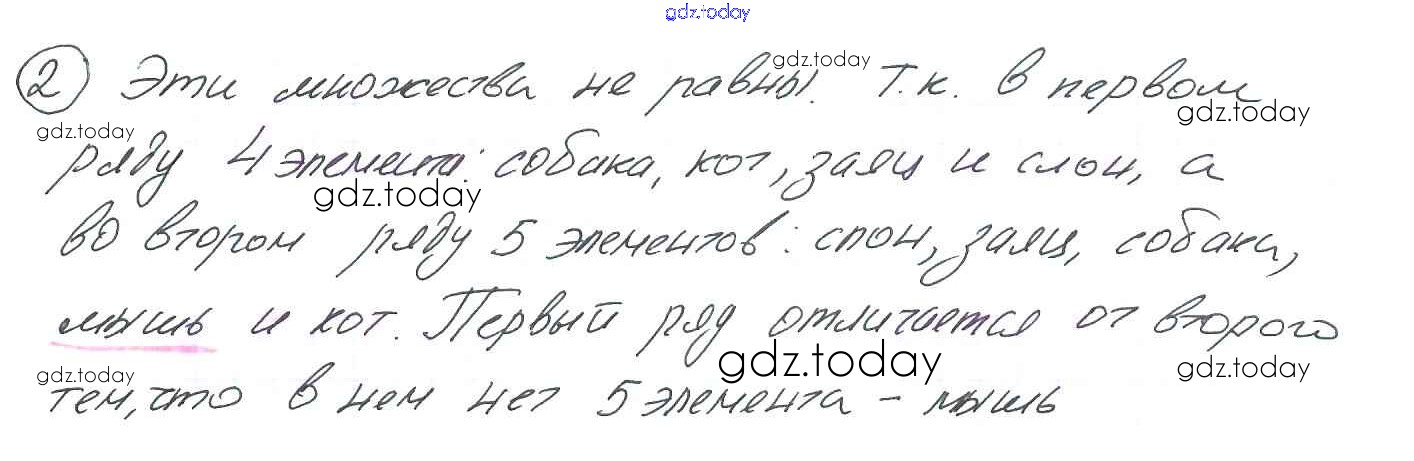 gdz.today
② Эти множества не равны. Т.к. в первом
gdz.today
gdz.today
gdz.today
ряду 4 элемента: собака, кот, заяц и слон, а
gdz.today
во втором ряду 5 элементов: слон, заяц, собака,
мышь и кот. Первый ряд отличается от второго
gdz.today
gdz.today
gdz.today
тем, что в нем нет 5 элемента - мышь